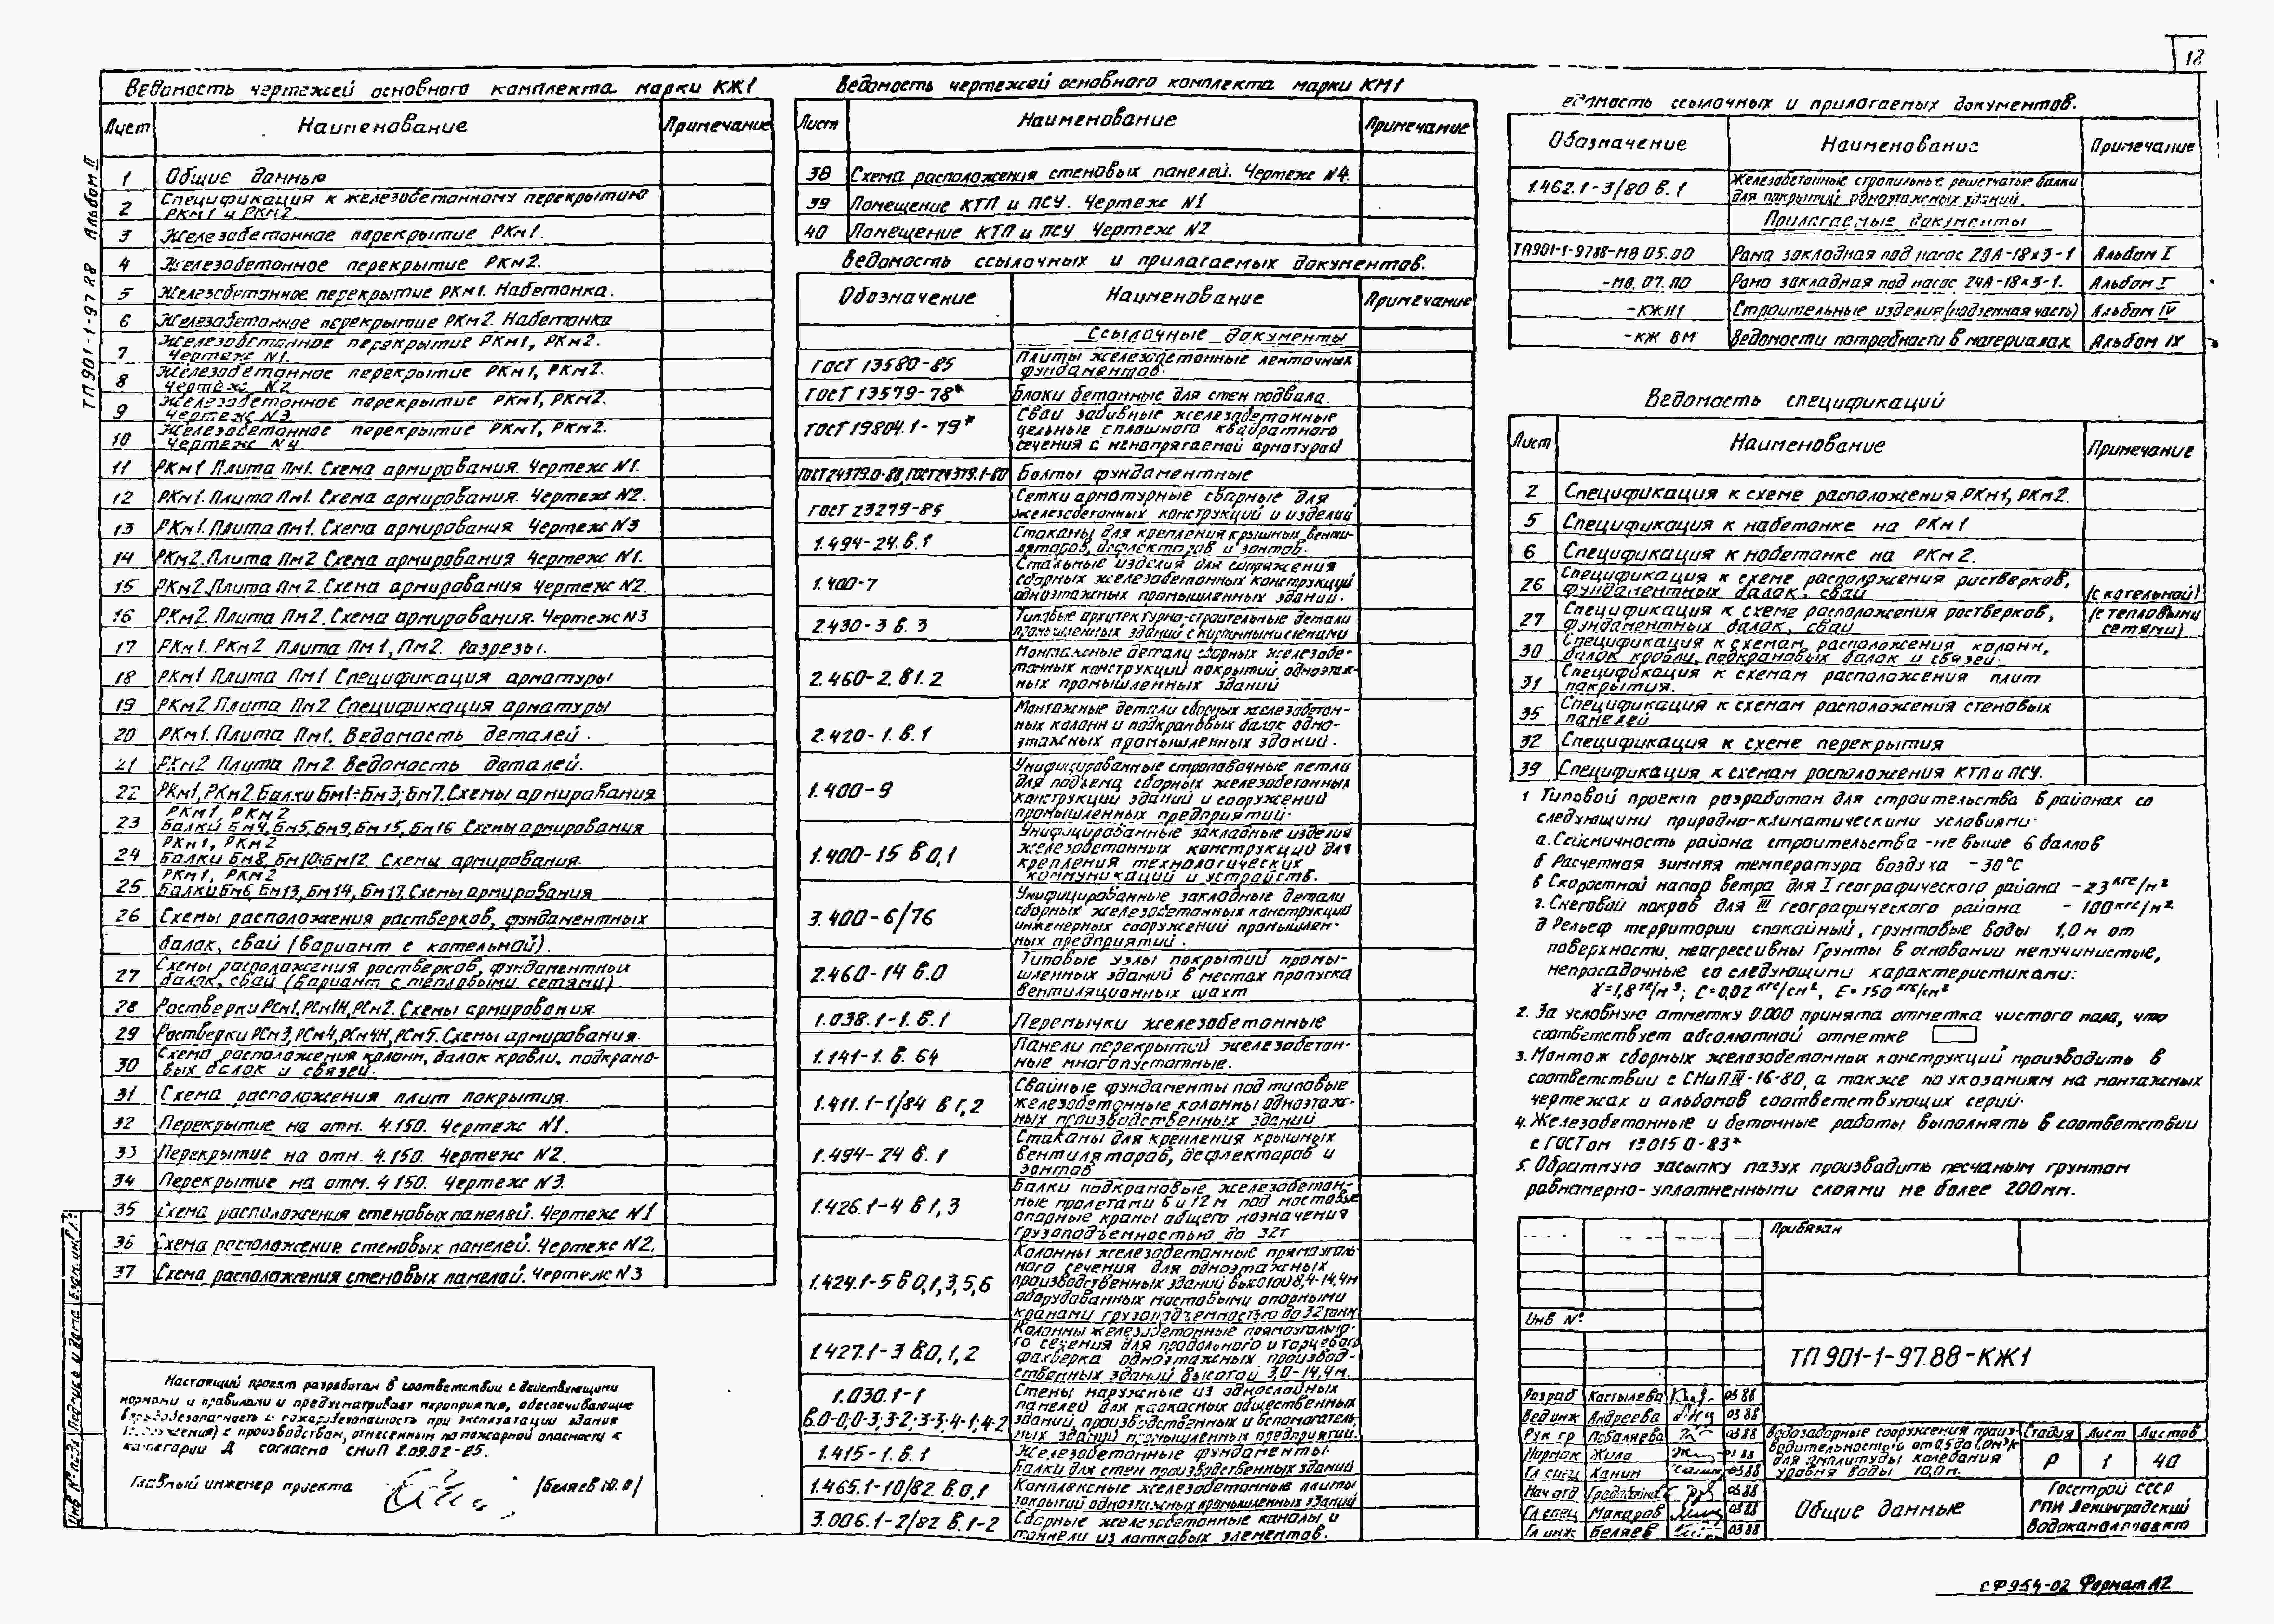 12
Ведомость чертежей основного комплекта марки КЖ1
Лист Наименование Примечание
1 Общие данные
2 Спецификация к железобетонному перекрытию
РКм1 и РКм2
3 Железобетонное перекрытие РКм1.
4 Железобетонное перекрытие РКм2.
5 Железобетонное перекрытие РКм1. Набетонка.
6 Железобетонное перекрытие РКм2. Набетонка
7 Железобетонное перекрытие РКм1, РКм2.
Чертеж N1.
8 Железобетонное перекрытие РКм1, РКм2.
Чертеж N2
9 Железобетонное перекрытие РКм1, РКм2.
Чертеж N3
10 Железобетонное перекрытие РКм1, РКм2.
Чертеж N4
11 РКм1 Плита Пм1. Схема армирования. Чертеж N1.
12 РКм1. Плита Пм1. Схема армирования. Чертеж N2.
13 РКм1. Плита Пм1. Схема армирования Чертеж N3
14 РКм2. Плита Пм2 Схема армирования Чертеж N1.
15 РКм2. Плита Пм2. Схема армирования Чертеж N2.
16 РКм2. Плита Пм2. Схема армирования. Чертеж N3
17 РКм1. РКм2 Плита Пм1, Пм2. Разрезы.
18 РКм1 Плита Пм1 Спецификация арматуры
19 РКм2 Плита Пм2 Спецификация арматуры
20 РКм1. Плита Пм1. Ведомость деталей.
21 РКм2 Плита Пм2. Ведомость деталей.
22 РКм1, РКм2. Балки Бм1÷Бм3; Бм7. Схемы армирования
23 РКм1, РКм2
Балки Бм4, Бм5, Бм9, Бм15, Бм16 Схемы армирования
24 РКм1, РКм2
Балки Бм8, Бм10÷Бм12. Схемы армирования.
25 РКм1, РКм2
Балки Бм6, Бм13, Бм14, Бм17. Схемы армирования
26 Схемы расположения ростверков, фундаментных
балок, свай (вариант с котельной).
27 Схемы расположения ростверков, фундаментных
балок, свай (вариант с тепловыми сетями).
28 Ростверки РСм1, РСм1Н, РСм2. Схемы армирования.
29 Ростверки РСм3, РСм4, РСм4Н, РСм5. Схемы армирования.
30 Схема расположения колонн, балок кровли, подкрано-
вых балок и связей.
31 Схема расположения плит покрытия.
32 Перекрытие на отм. 4.150. Чертеж N1.
33 Перекрытие на отм. 4.150. Чертеж N2.
34 Перекрытие на отм. 4 150. Чертеж N3.
35 Схема расположения стеновых панелей. Чертеж N1
36 Схема расположение стеновых панелей. Чертеж N2.
37 Схема расположения стеновых панелей. Чертеж N3
Настоящий проект разработан в соответствии с действующими
нормами и правилами и предусматривает мероприятия, обеспечивающие
взрывобезопасность и пожаробезопасность при эксплуатации здания
(сооружения) с производством, отнесенным по пожарной опасности к
категории Д согласно СНиП 2.09.02-85.
Главный инженер проекта /Беляев Ю.О/
Ведомость чертежей основного комплекта марки КМ1
Лист Наименование Примечание
38 Схема расположения стеновых панелей. Чертеж N4.
39 Помещение КТП и ПСУ. Чертеж N1
40 Помещение КТП и ПСУ Чертеж N2
Ведомость ссылочных и прилагаемых документов.
Обозначение Наименование Примечание
Ссылочные документы
ГОСТ 13580-85 Плиты железобетонные ленточных
фундаментов.
ГОСТ 13579-78* Блоки бетонные для стен подвала.
ГОСТ 19804.1-79* Сваи забивные железобетонные
цельные сплошного квадратного
сечения с ненапрягаемой арматурой
ГОСТ 24379.0-80, ГОСТ 24379.1-80 Болты фундаментные
ГОСТ 23279-85 Сетки арматурные сварные для
железобетонных конструкций и изделий
1.494-24. в.1 Стаканы для крепления крышных венти-
ляторов, дефлекторов и зонтов.
1.400-7 Стальные изделия для сопряжения
сборных железобетонных конструкций
одноэтажных промышленных зданий.
2.430-3 в.3 Типовые архитектурно-строительные детали
промышленных зданий с кирпичными стенами
2.460-2. в1.2 Монтажные детали сборных железобе-
тонных конструкций покрытий одноэтаж-
ных промышленных зданий
2.420-1. в.1 Монтажные детали сборных железобетон-
ных колонн и подкрановых балок одно-
этажных промышленных зданий.
1.400-9 Унифицированные строповочные петли
для подъема сборных железобетонных
конструкции зданий и сооружений
промышленных предприятий.
1.400-15 в0,1 Унифицированные закладные изделия
железобетонных конструкций для
крепления технологических
коммуникаций и устройств.
3.400-6/76 Унифицированные закладные детали
сборных железобетонных конструкций
инженерных сооружений промышлен-
ных предприятий.
2.460-14 в.0 Типовые узлы покрытий промы-
шленных зданий в местах пропуска
вентиляционных шахт
1.038.1-1. в.1 Перемычки железобетонные
1.141-1. в. 64 Панели перекрытий железобетон-
ные многопустотные.
1.411.1-1/84 в 1,2 Свайные фундаменты под типовые
железобетонные колонны одноэтаж-
ных производственных зданий
1.494-24 в. 1 Стаканы для крепления крышных
вентиляторов, дефлекторов и
зонтов
1.426.1-4 в1,3 Балки подкрановые железобетон-
ные пролетами 6 и 12 м под мостовые
опорные краны общего назначения
грузоподъемностью до 32т
1.424.1-5 в0,1,3,5,6 Колонны железобетонные прямоуголь-
ного сечения для одноэтажных
производственных зданий высотой 8,4-14,4м
оборудованных мостовыми опорными
кранами грузоподъемностью до 32 тонн
1.427.1-3 в.0,1,2 Колонны железобетонные прямоугольно-
го сечения для продольного и торцевого
фахверка одноэтажных производ-
ственных зданий высотой 3,0-14,4м.
1.030.1-1 Стены наружные из однослойных
панелей для каркасных общественных
в.0-0,0-3;3-2;3-3;4-1;4-2 зданий, производственных и вспомогатель-
ных зданий промышленных предприятий.
1.415-1. в.1 Железобетонные фундаменты.
Балки для стен производственных зданий
1.465.1-10/82 в.0,1 Комплексные железобетонные плиты
покрытий одноэтажных промышленных зданий
3.006.1-2/82 в.1-2 Сборные железобетонные каналы и
тоннели из лотковых элементов.
едомость ссылочных и прилагаемых документов.
Обозначение Наименование Примечание
1.462.1-3/80 в.1 Железобетонные стропильные решетчатые балки
для покрытий одноэтажных зданий.
Прилагаемые документы
ТП901-1-97.88-МВ 05.00 Рама закладная под насос 20А-18х3-1 Альбом I
-МВ. 07.00 Рама закладная под насос 24А-18х3-1. Альбом I
-КЖИ1 Строительные изделия (подземная часть) Альбом IV
-КЖ ВМ Ведомости потребности в материалах Альбом IX
Ведомость спецификаций
Лист Наименование Примечание
2 Спецификация к схеме расположения РКм1, РКм2.
5 Спецификация к набетонке на РКм1
6 Спецификация к набетонке на РКм2.
26 Спецификация к схеме расположения ростверков,
фундаментных балок, свай (с котельной)
27 Спецификация к схеме расположения ростверков, (с тепловыми
фундаментных балок, свай сетями)
30 Спецификация к схемам расположения колонн,
балок кровли, подкрановых балок и связей.
31 Спецификация к схемам расположения плит
покрытия.
35 Спецификация к схемам расположения стеновых
панелей
32 Спецификация к схеме перекрытия
39 Спецификация к схемам расположения КТП и ПСУ.
1 Типовой проект разработан для строительства в районах со
следующими природно-климатическими условиями:
а. Сейсмичность района строительства - не выше 6 баллов
б Расчетная зимняя температура воздуха -30°С
в Скоростной напор ветра для I географического района -23 кгс/м²
г. Снеговой покров для III географического района - 100 кгс/м²
д Рельеф территории спокойный, грунтовые воды 1,0 м от
поверхности, неагрессивны Грунты в основании непучинистые,
непросадочные со следующими характеристиками:
γ=1,8 тс/м³; С=0,02 кгс/см², Е=150 кгс/см²
2. За условную отметку 0.000 принята отметка чистого пола, что
соответствует абсолютной отметке
3. Монтаж сборных железобетонных конструкций производить в
соответствии с СНиП III-16-80, а также по указаниям на монтажных
чертежах и альбомов соответствующих серий.
4. Железобетонные и бетонные работы выполнять в соответствии
с ГОСТом 13015 0-83*
5. Обратную засыпку пазух производить песчаным грунтом
равномерно-уплотненными слоями не более 200мм.
Привязан
Инв N°
ТП 901-1-97.88-КЖ1
Разраб Костылева 03.88
Вед инж Андреева 03.88
Рук гр Поваляева 03.88
Нормок Жила 03.88
Гл спец Ханин 03.88
Нач отд 03.88
Гл спец Макаров 03.88
Гл инж Беляев 03.88
Водозаборные сооружения произ-
водительностью от 0,5 до 1,0м³/с
для амплитуды колебания
уровня воды 10,0м.
Стадия Лист Листов
Р 1 40
Общие данные
Госстрой СССР
ГПИ Ленинградский
Водоканалпроект
СФ954-02 Формат А2
ТП 901-1-97 88 Альбом II
Инв N° подл Подпись и дата Взам. инв N°